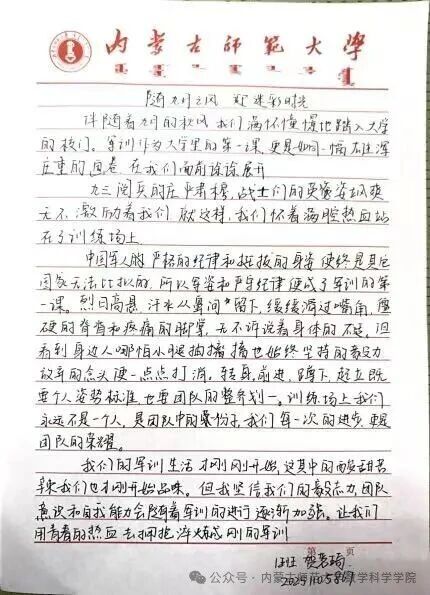 内蒙古师范大学
随九月之风 起迷彩时光
伴随着九月的秋风,我们满怀憧憬地踏入大学
的校门。军训作为大学里的第一课,更是如同一幅雄浑
庄重的画卷,在我们面前徐徐展开
九三阅兵的庄严肃穆,战士们的英姿飒爽
无不激励着我们,就这样,我们怀着满腔热血站
在了训练场上.
中国军人的严格的纪律和挺拔的身姿使终是其它
国家无法比拟的,所以军姿和严守纪律便成了军训的第
一课。烈日高悬,汗水从鼻间留下,缓缓滑过嘴角,
硬的脊背和疼痛的脚掌,无不诉说着身体的不适,但
看到身边人哪怕小腿抽搐也始终坚持的毅力
放弃的念头便一点点打消,转身,前进,蹲下,起立既
要个人姿势标准,也要团队的整齐划一。训练场上我们
永远不是一个人,是团队中的一份子,我们每一次的进步,更是
团队的荣耀。
我们的军训生活才刚刚开始,这其中的酸甜苦
辣我们也才刚开始品味。但我坚信我们的毅志力,团队
意识和自我能力会随着军训的进行逐渐加强。让我们
用青春的热血去拥抱淬炼成刚的军训
第 页
公众号·内蒙古师范大学数学科学学院